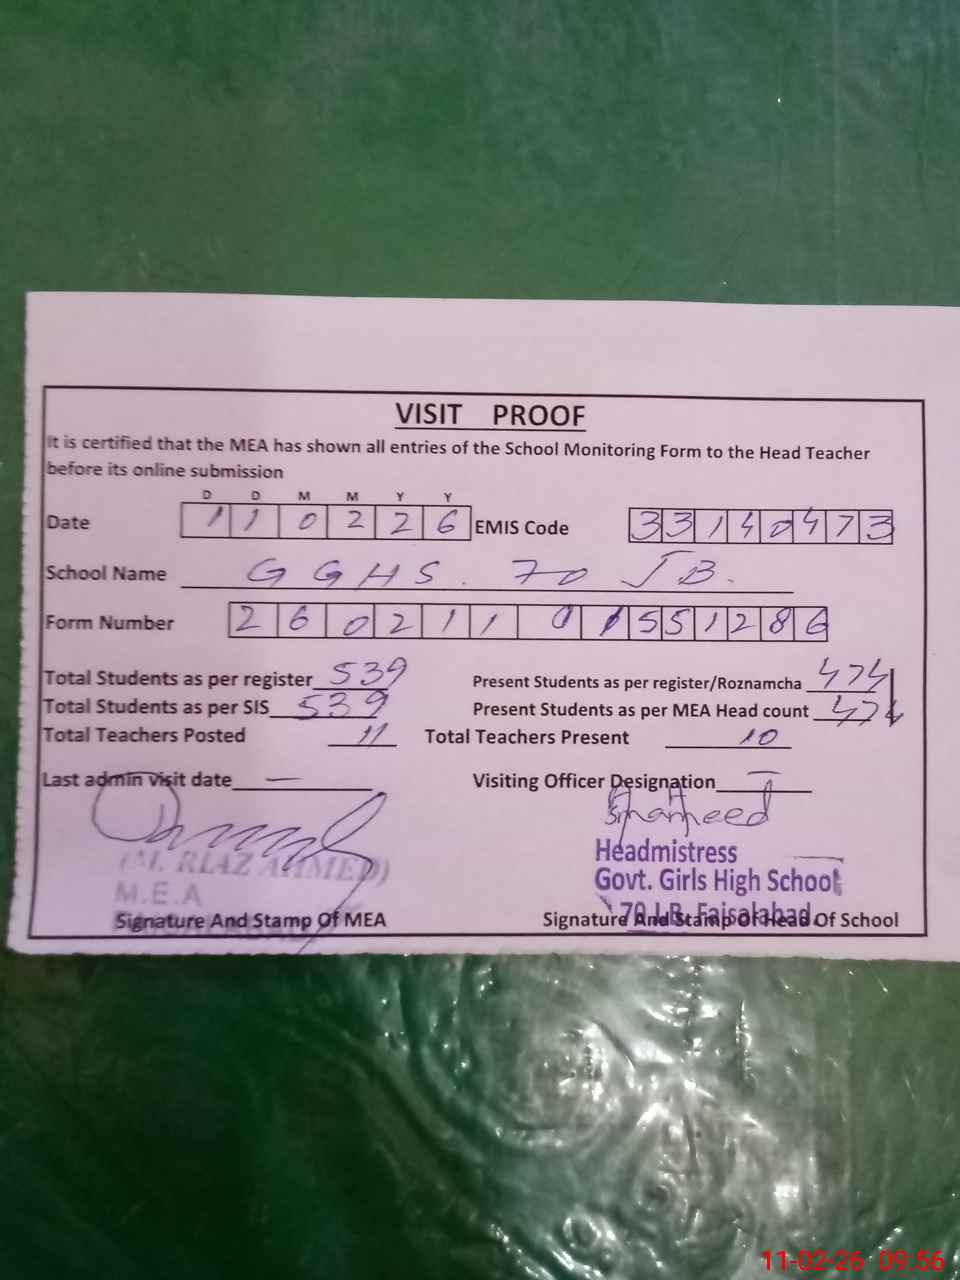 VISIT PROOF
It is certified that the MEA has shown all entries of the School Monitoring Form to the Head Teacher
before its online submission
D D M M Y Y
Date 1 1 0 2 2 6 EMIS Code 3 3 1 4 0 4 7 3
School Name G G H S . 70 J B.
Form Number 2 6 0 2 1 1 0 1 5 5 1 2 8 6
Total Students as per register 539 Present Students as per register/Roznamcha 474
Total Students as per SIS 539 Present Students as per MEA Head count 474
Total Teachers Posted 11 Total Teachers Present 10
Last admin visit date — Visiting Officer Designation —
(M. RIAZ AHMED) Headmistress
M.E.A Govt. Girls High School
70 J.B. Faisalabad
Signature And Stamp Of MEA Signature And Stamp Of Head Of School
11-02-26 09:56